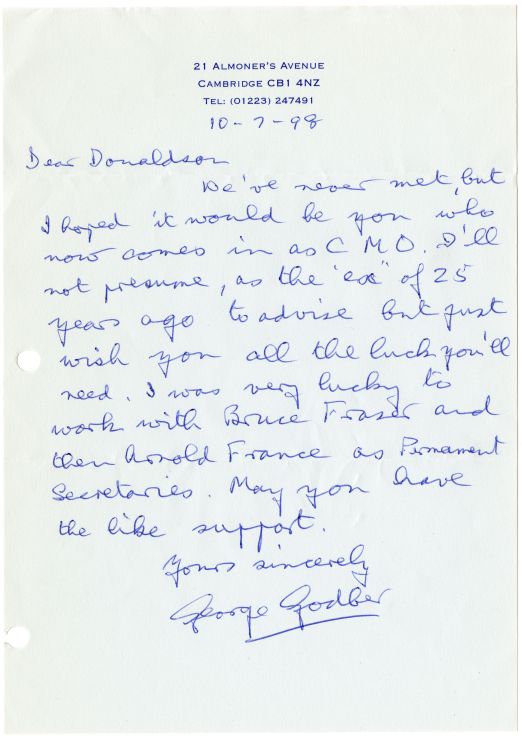 21 ALMONER'S AVENUE
CAMBRIDGE CB1 4NZ
TEL: (01223) 247491
10-7-98
Dear Donaldson
We've never met, but
I hoped it would be you who
now comes in as C M O. I'll
not presume, as the "ex" of 25
years ago to advise but just
wish you all the luck you'll
need. I was very lucky to
work with Bruce Fraser and
then Arnold France as Permanent
Secretaries. May you have
the like support.
Yours sincerely
George Godber